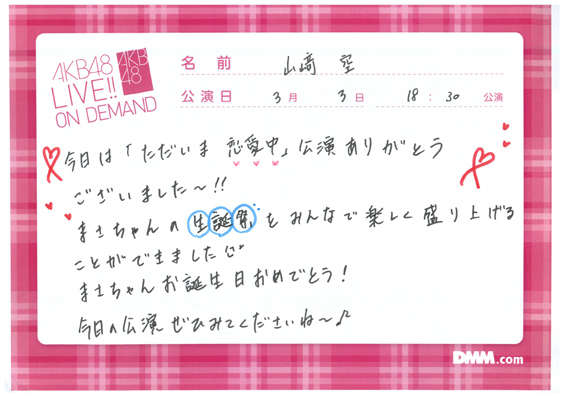 AKB48
LIVE!!
ON DEMAND
AKB
48
名前 山﨑 空
公演日 3月 3日 18:30 公演
今日は「ただいま 恋愛中」公演ありがとう
ございました〜!!
まさちゃんの生誕祭をみんなで楽しく盛り上げる
ことができました
まさちゃんお誕生日おめでとう!
今日の公演ぜひみてくださいね〜♪
DMM.com